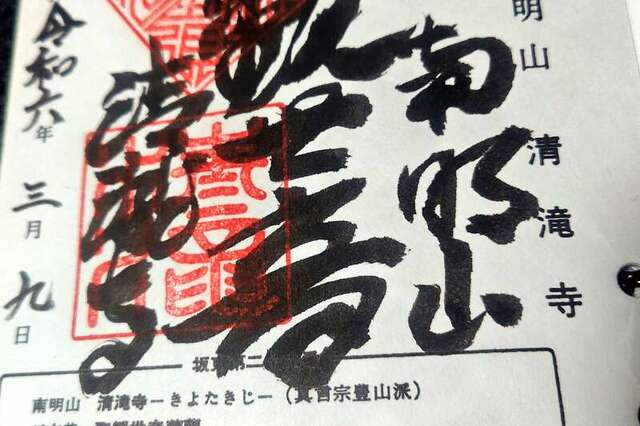 明山 清滝寺
南明山
観世音
清瀧寺
令和六年三月九日
坂東第二
南明山 清滝寺ーきよたきじー（真言宗豊山派）